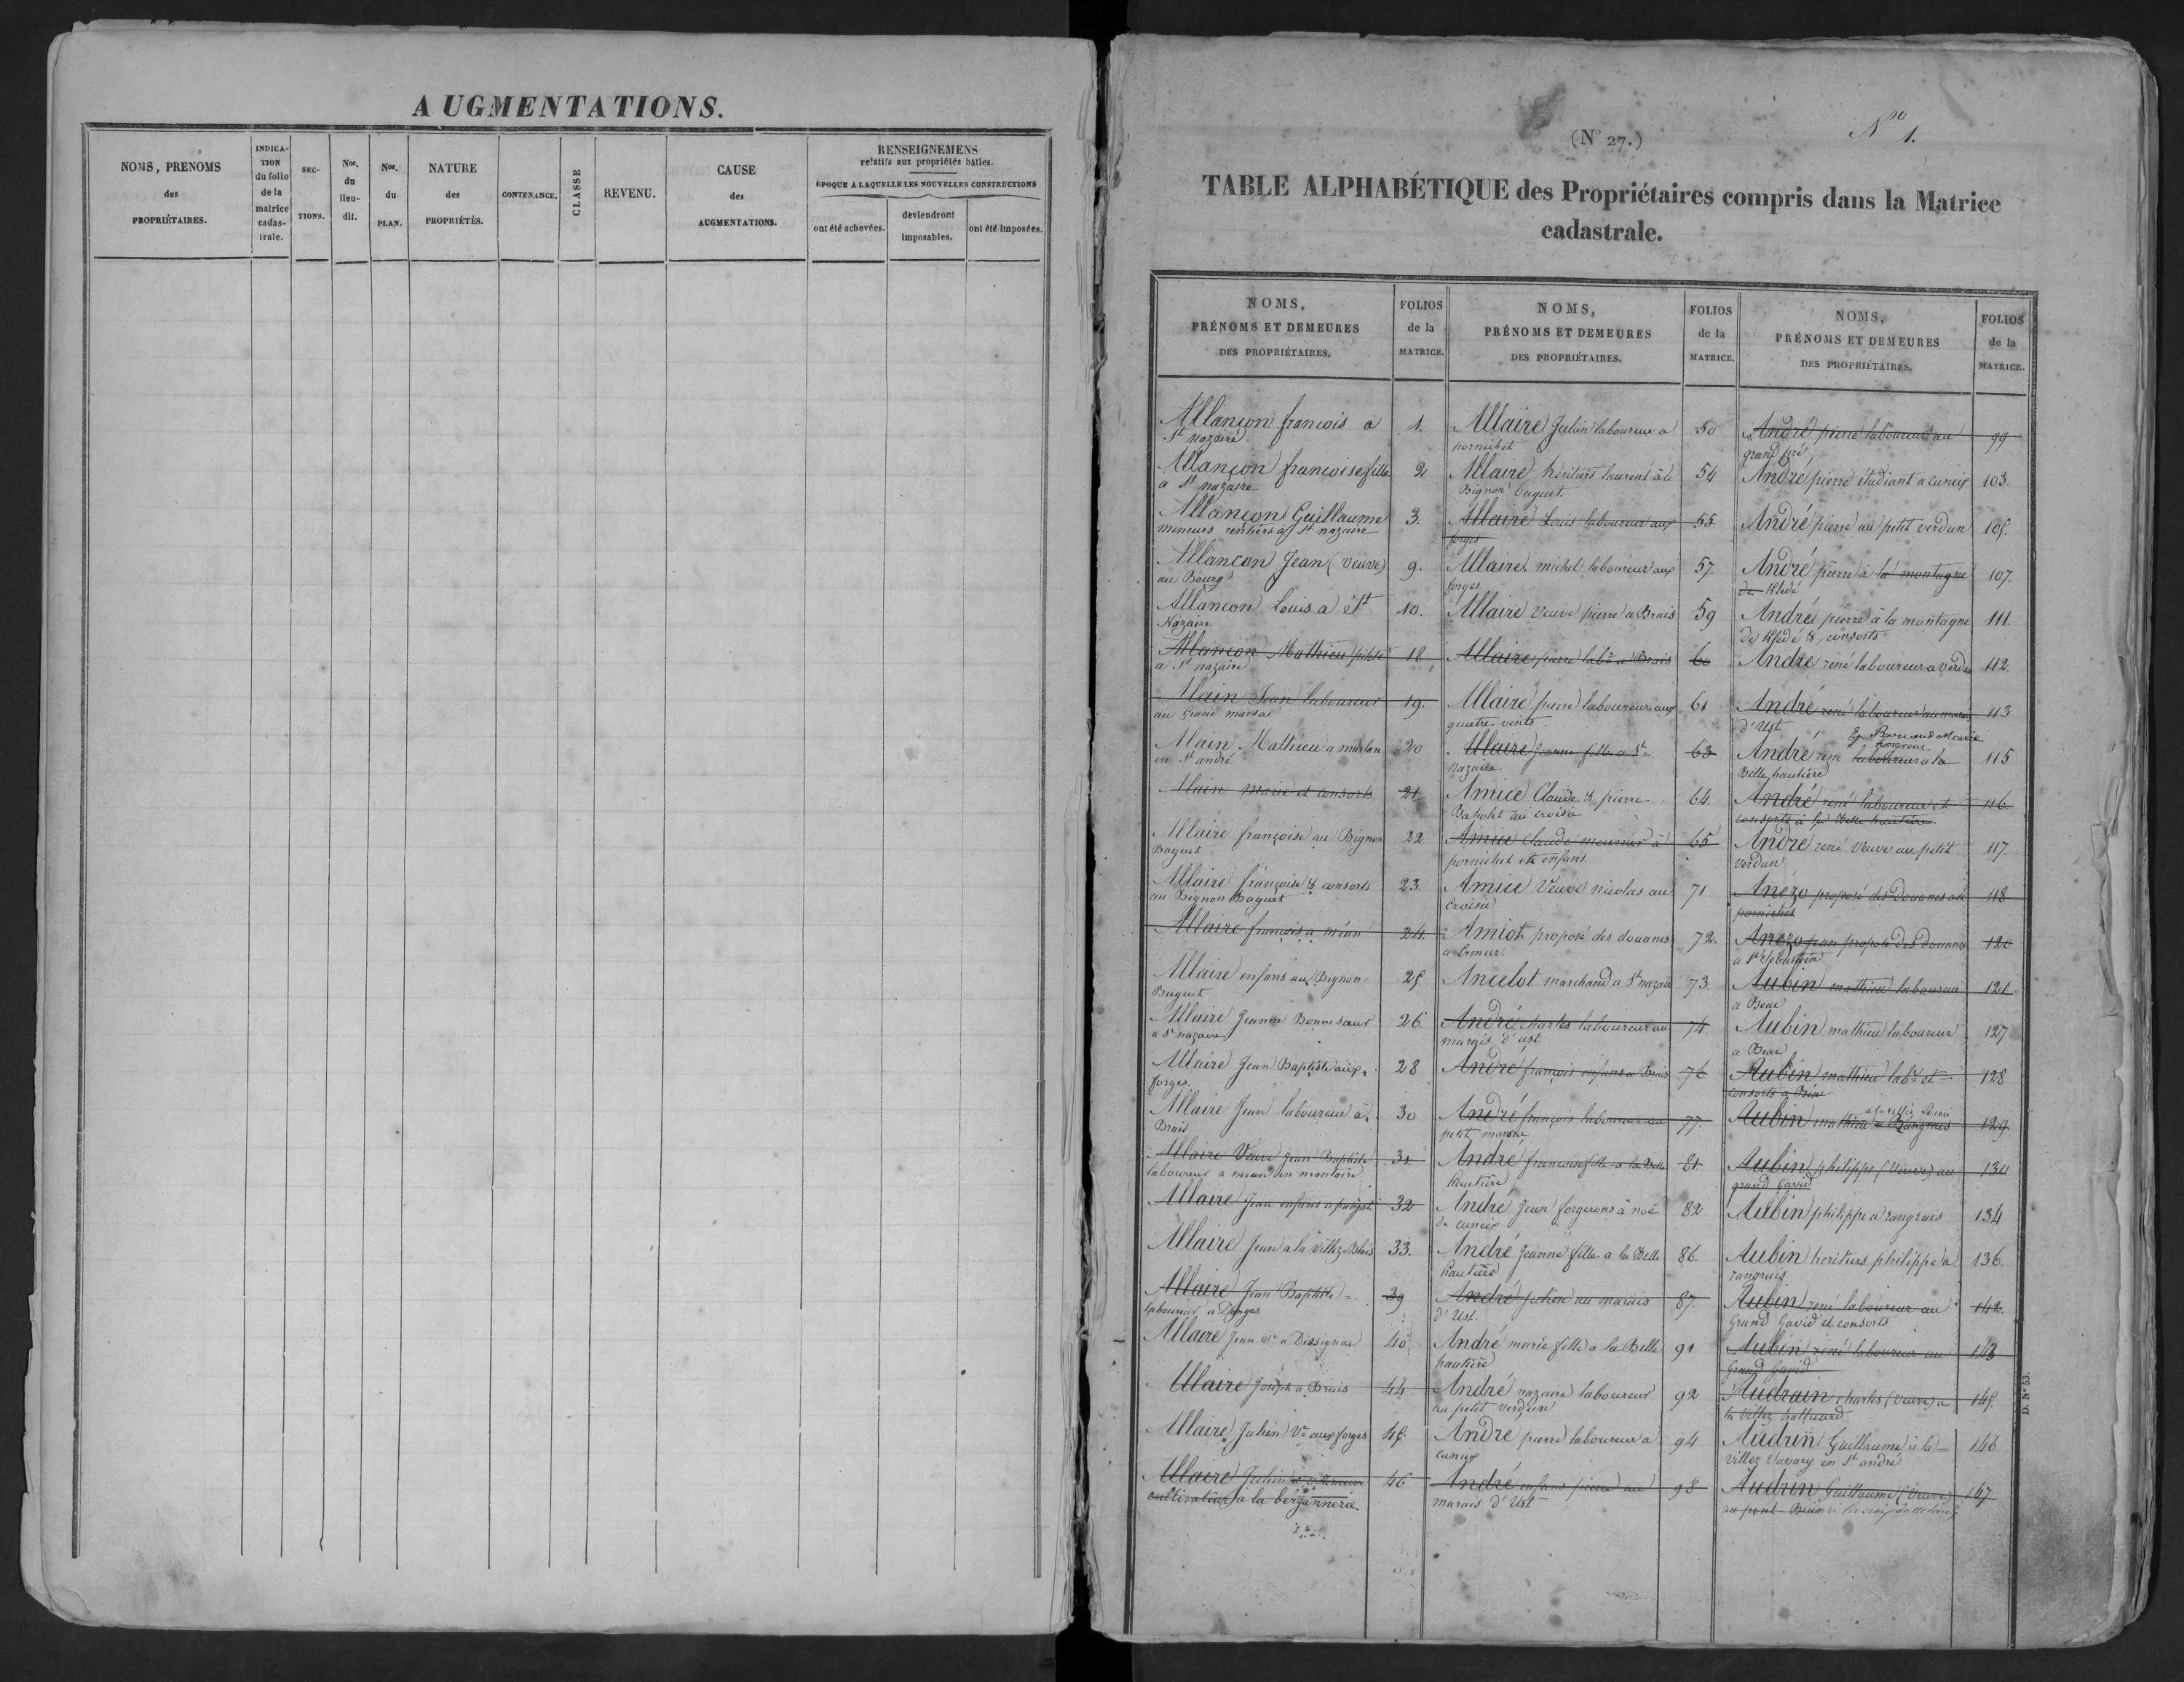 AUGMENTATIONS.
NOMS, PRENOMS
des
PROPRIÉTAIRES.
INDICA-
TION
du folio
de la
matrice
cadas-
trale.
SEC-
TIONS.
Nos.
du
lieu-
dit.
Nos.
du
PLAN.
NATURE
des
PROPRIÉTÉS.
CONTENANCE.
CLASSE
REVENU.
CAUSE
des
AUGMENTATIONS.
RENSEIGNEMENS
relatifs aux propriétés bâties.
ÉPOQUE A LAQUELLE LES NOUVELLES CONSTRUCTIONS
ont été achevées.
deviendront
imposables.
ont été imposées.
(N° 27.)
No 1.
TABLE ALPHABÉTIQUE des Propriétaires compris dans la Matrice
cadastrale.
NOMS,
PRÉNOMS ET DEMEURES
DES PROPRIÉTAIRES.
FOLIOS
de la
MATRICE.
Allançon francois a 1.
St nazaire
Allançon francoise fille 2
a St nazaire
Allançon Guillaume 3.
mineurs rentiers a St nazaire
Allançon Jean (Veuve) 9.
au Bourg
Allançon Louis a St 10.
Nazaire
Allançon Mathieu pilote 18
a St nazaire
Alain Jean laboureur 19.
au Grand marsac
Alain Mathieu a marlan 20
en St andré
Alain Marie et consorts 21
Allaire françoise au Bignon 22
Baguet
Allaire françoise & consorts 23.
au Bignon Baguet
Allaire francois a méan 24.
Allaire enfans au Bignon 25
Baguet
Allaire Jeanne Bonne Sœur 26
a St nazaire
Allaire Jean Baptiste aux 28
forges
Allaire Jean laboureur à 30
Brais
Allaire Veuve Jean Baptiste 31.
laboureur a mean en montoire
Allaire Jean enfans a 32
Allaire Jean a la Villez Blais 33.
Allaire Jean Baptiste 39
laboureur a Donges
Allaire Jean Ve a Dissignac 40
Allaire Joseph a Brais 44
Allaire Julien Ve aux forges 45
Allaire Julien 46
cultivateur a la bérgannerie
NOMS,
PRÉNOMS ET DEMEURES
DES PROPRIÉTAIRES.
FOLIOS
de la
MATRICE.
Allaire Julien laboureur a 50
pornichet
Allaire heritiers laurent à le 54
Bignon Baguet
Allaire Louis laboureur aux 55
forges
Allaire michel laboureur aux 57.
forges
Allaire Veuve pierre a Brais 59
Allaire pierre labr a Brais 60
Allaire pierre laboureur aux 61
quatre vents
Allaire Jeanne fille a St 63
Nazaire
Amice Claude & pierre 64.
au croisic
Amice Claude meunier à 65
pornichet et enfans
Amice Veuve nicolas au 71
Croisic
Amiot proposé des douanes 72.
a
Ancelot marchand a St nazaire 73.
André charles laboureur au 74
marais d'ust
André françois enfans a Brais 76
André françois laboureur au 77.
petit marsac
André francoise fille a la Belle 81
hautière
André Jean forgerons à noë 82
de cuneix
André Jeanne fille a la Belle 86.
hautière
André Julien au marais 87.
d'Ust.
André marie fille a la Belle 91
hautière
André nazaire laboureur 92
au petit verdun
André pierre laboureur a 94
cuneix
André enfans pierre au 98
marais d'Ust
NOMS,
PRÉNOMS ET DEMEURES
DES PROPRIÉTAIRES.
FOLIOS
de la
MATRICE.
André pierre laboureur au 99
grand pré
André pierre étudiant a cuneix 103.
André pierre au petit verdun 105.
André pierre à la montagne 107.
de Kledé
André pierre à la montagne 111.
de Kledé & consorts
André rené laboureur a verdun 112.
André rené laboureur au marais 113
d'Ust
Marie
André rené laboureur a la 115
Belle hautière
André rené laboureur et 116
consorts à la Belle hautière
André rené Veuve au petit 117.
verdun
Anézo proposé des Douanes a 118
pornichet
Anézo jean proposé des Douanes 120
a St Sebastien
Aubin mathieu laboureur 121
a Beac
Aubin mathieu laboureur 127
a Beac
Aubin mathieu labr et 128
consorts a Beac
Aubin mathieu a Rangrais 129
Aubin philippe (Veuve) au 130
grand Gavid
Aubin philippe a rangrais 134
Aubin heritiers philippe a 136.
rangrais
Aubin rené laboureur au 142.
Grand Gavid et consorts
Aubin rené laboureur au 143
Grand Gavid
Audrain charles (Veuve) a 145
la Villez
Audrin Guillaume à la 146
Villez Savary en St andré
Audrin Guillaume (Veuve) 147
au pont Brien
D. N° 53.